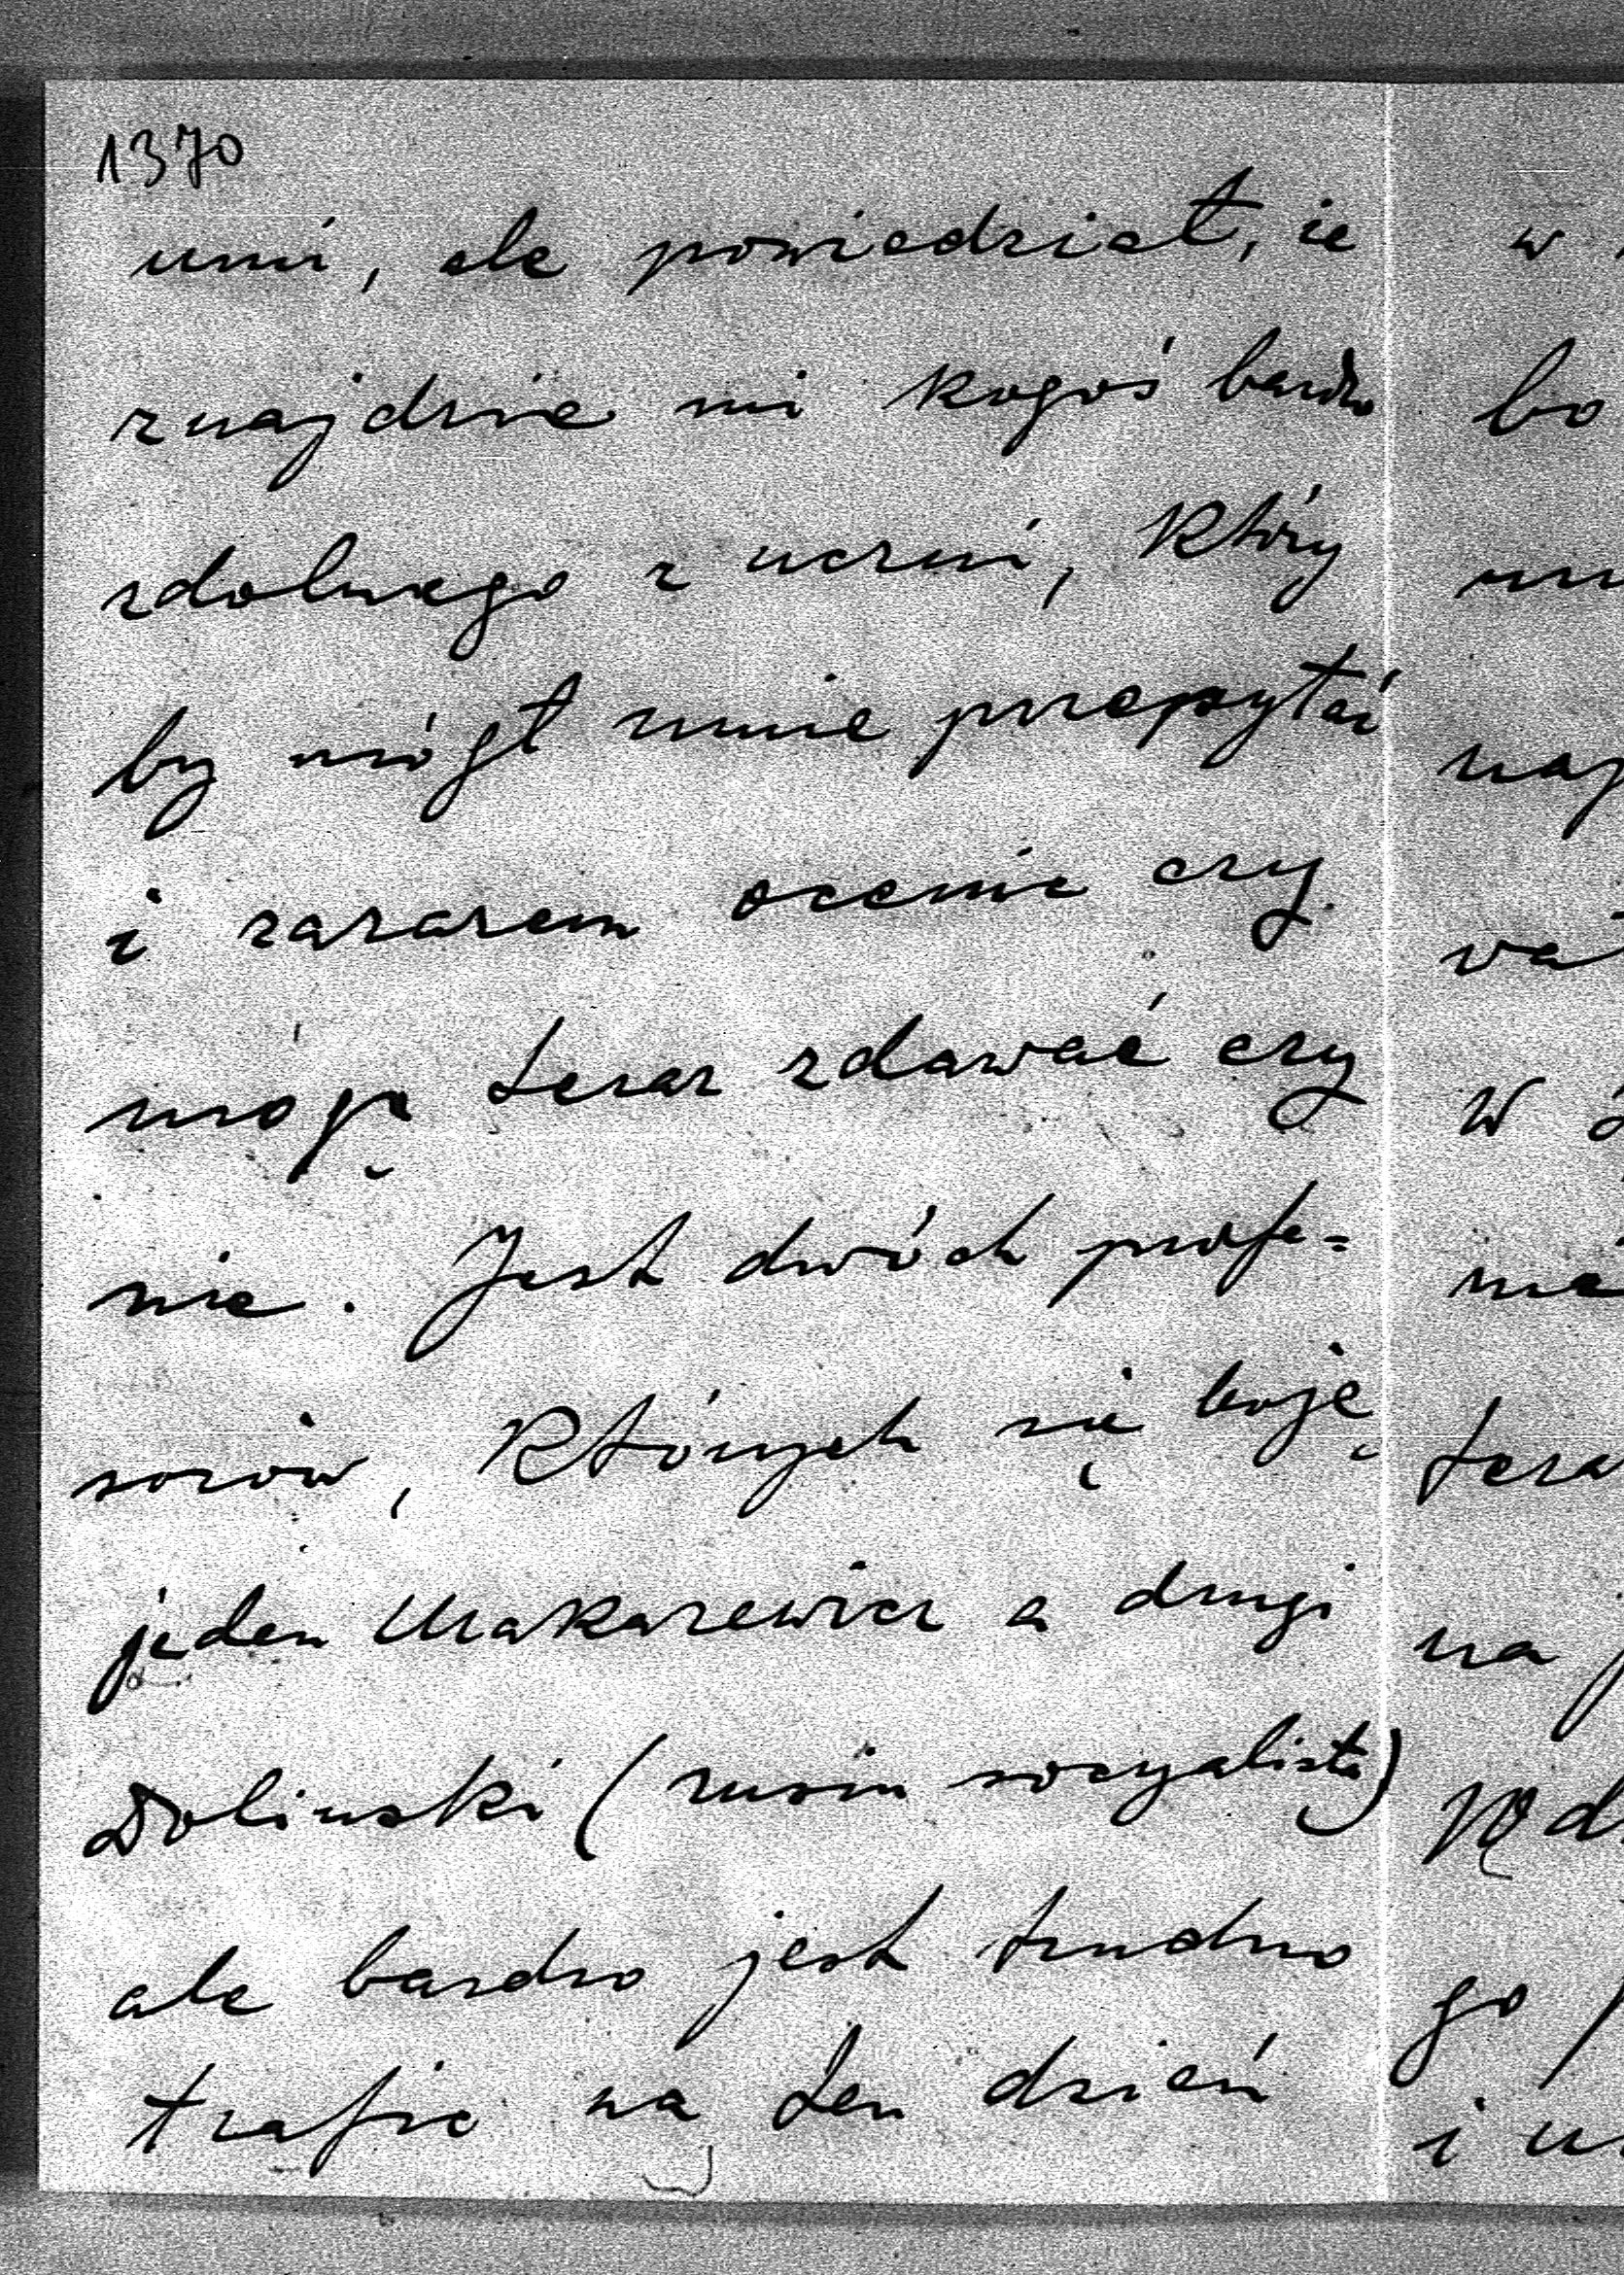 1370
umić, ale powiedział, że
znajdzie mi kogoś bardzo
zdolnego z uczni, który
by mógł mnie przepytać
i zarazem ocenić czy
mogę teraz zdawać czy
nie. Jest dwóch profe=
sorów, których się boję
jeden Makarewicz a drugi
Dolinski (rusin socyalista)
ale bardzo jest trudno
trafić na ten dzień
w
bo
va
W
na
go
i